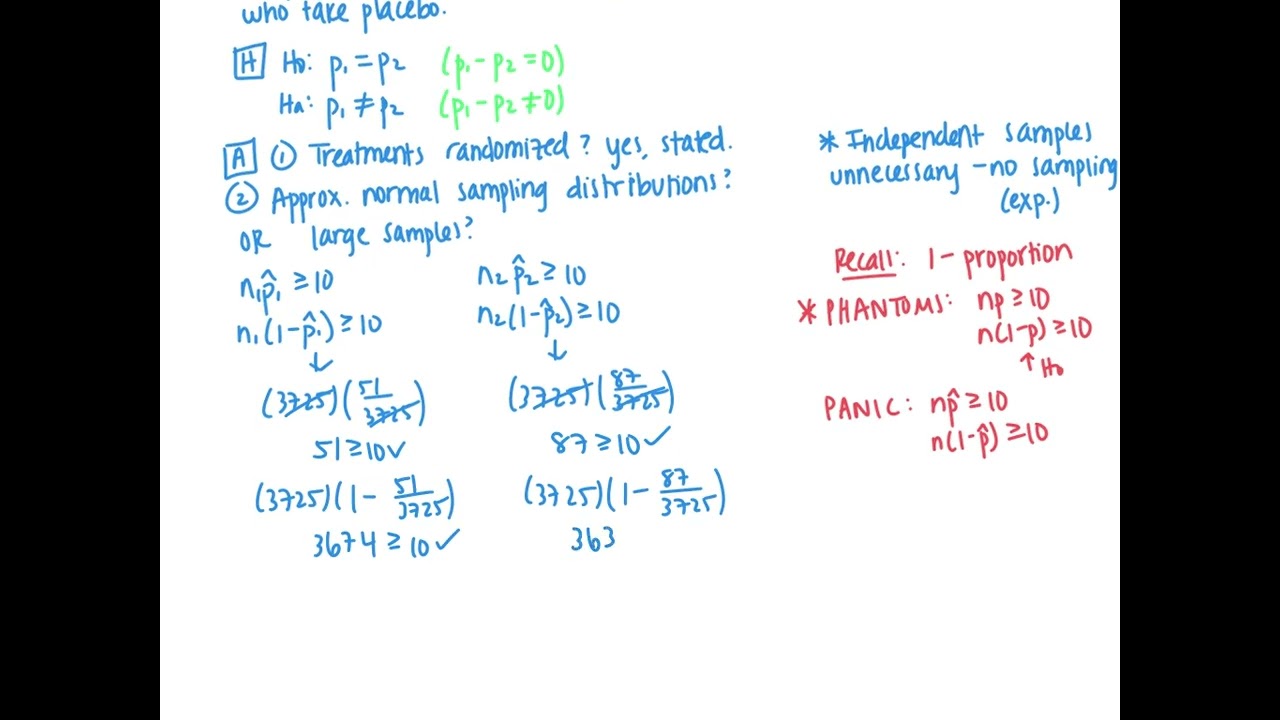 who take placebo.
H Ho: p₁ = p₂ (p₁ - p₂ = 0)
Ha: p₁ ≠ p₂ (p₁ - p₂ ≠ 0)
A ① Treatments randomized? yes, stated.
② Approx. normal sampling distributions?
OR large samples?
n₁p̂₁ ≥ 10 n₂p̂₂ ≥ 10
n₁(1-p̂₁) ≥ 10 n₂(1-p̂₂) ≥ 10
↓ ↓
(3725)(51/3725) (3725)(87/3725)
51 ≥ 10 ✓ 87 ≥ 10 ✓
(3725)(1 - 51/3725) (3725)(1 - 87/3725)
3674 ≥ 10 ✓ 363
* Independent samples
unnecessary - no sampling
(exp.)
Recall: 1 - proportion
* PHANTOMS: np ≥ 10
n(1-p) ≥ 10
↑ Ho
PANIC: np̂ ≥ 10
n(1-p̂) ≥ 10